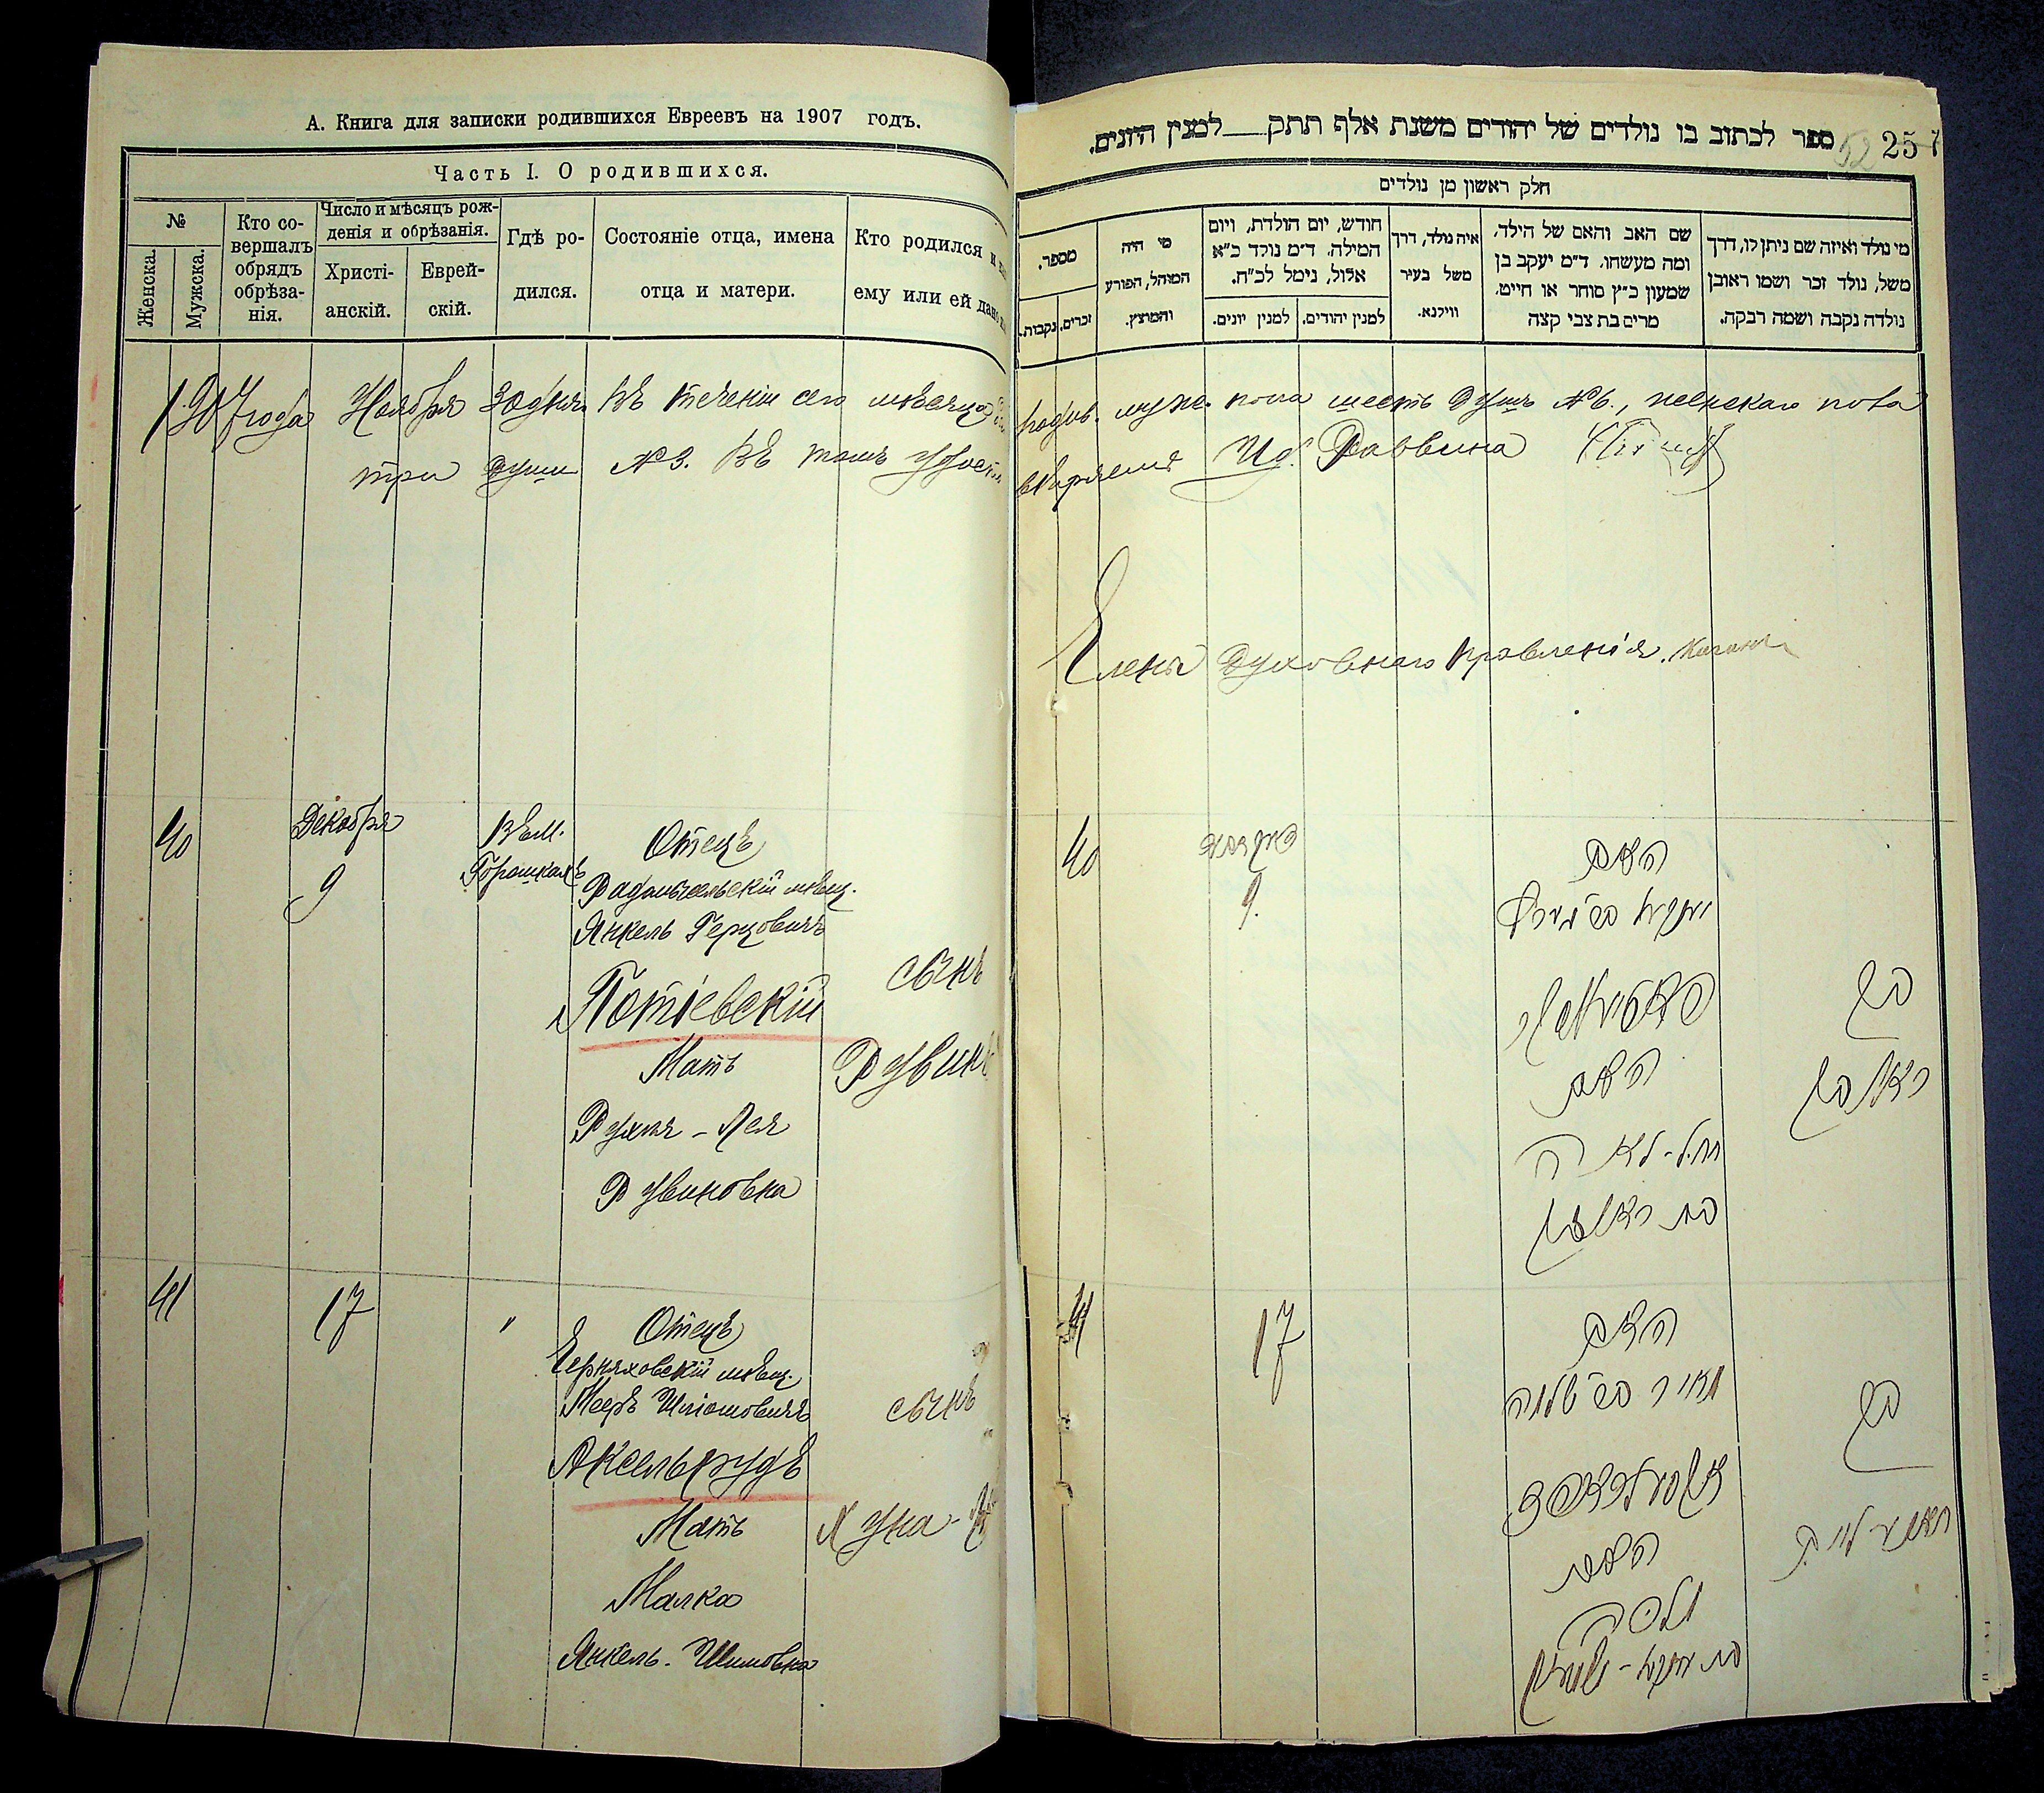 А. Книга для записки родившихся Евреевъ на 1907 годъ.
Часть I. О родившихся.
№
Женска.
Мужска.
Кто со-
вершалъ
обрядъ
обрѣза-
нія.
Число и мѣсяцъ рож-
денія и обрѣзанія.
Христі-
анскій.
Еврей-
скій.
Гдѣ ро-
дился.
Состояніе отца, имена
отца и матери.
Кто родился и
ему или ей дано
1907 года Ноября 30 дня въ теченіи сего мѣсяца
три души №3. Въ томъ удост
40
Декабря
9
Въ м.
Горошкахъ
Отецъ
Радомысльскій мѣщ.
Янкель Герцовичъ
Потіевскій
Мать
Рухля-Лея
Рувиновна
сынъ
Рувинъ
41
17
"
Отецъ
Черняховскій мѣщ.
Мееръ Шліомовичъ
Аксельрудъ
Мать
Малка
Янкель-Шимовна
сынъ
Хуна-
ספר לכתוב בו נולדים של יהודים משנת אלף תתק___למנין היונים.
52
257
חלק ראשון מן נולדים
מספר.
נקבות.
זכרים.
מי היה
המוהל, הפורע
והמוצץ.
חודש, יום הולדת, ויום
המילה. ד״מ נולד כ״א
אלול, נימל לכ״ח.
למנין יונים.
למנין יהודים.
איה נולד, דרך
משל בעיר
ווילנא.
שם האב והאם של הילד,
ומה מעשהו. ד״מ יעקב בן
שמעון כ״ץ סוחר או חייט,
מרים בת צבי קצה
מי נולד ואיזה שם ניתן לו, דרך
משל, נולד זכר ושמו ראובן
נולדה נקבה ושמה רבקה.
родив. муже. пола шесть душъ №6., женскаго пола
вѣряемъ Ид. Раввина
Члены Духовнаго Правленія.
40
9.
האב
האם
רחל-לאה
בת ראובן
בן
ראובן
41
17
האב
מאיר ב״ר שלמה
האם
מלכה
בן